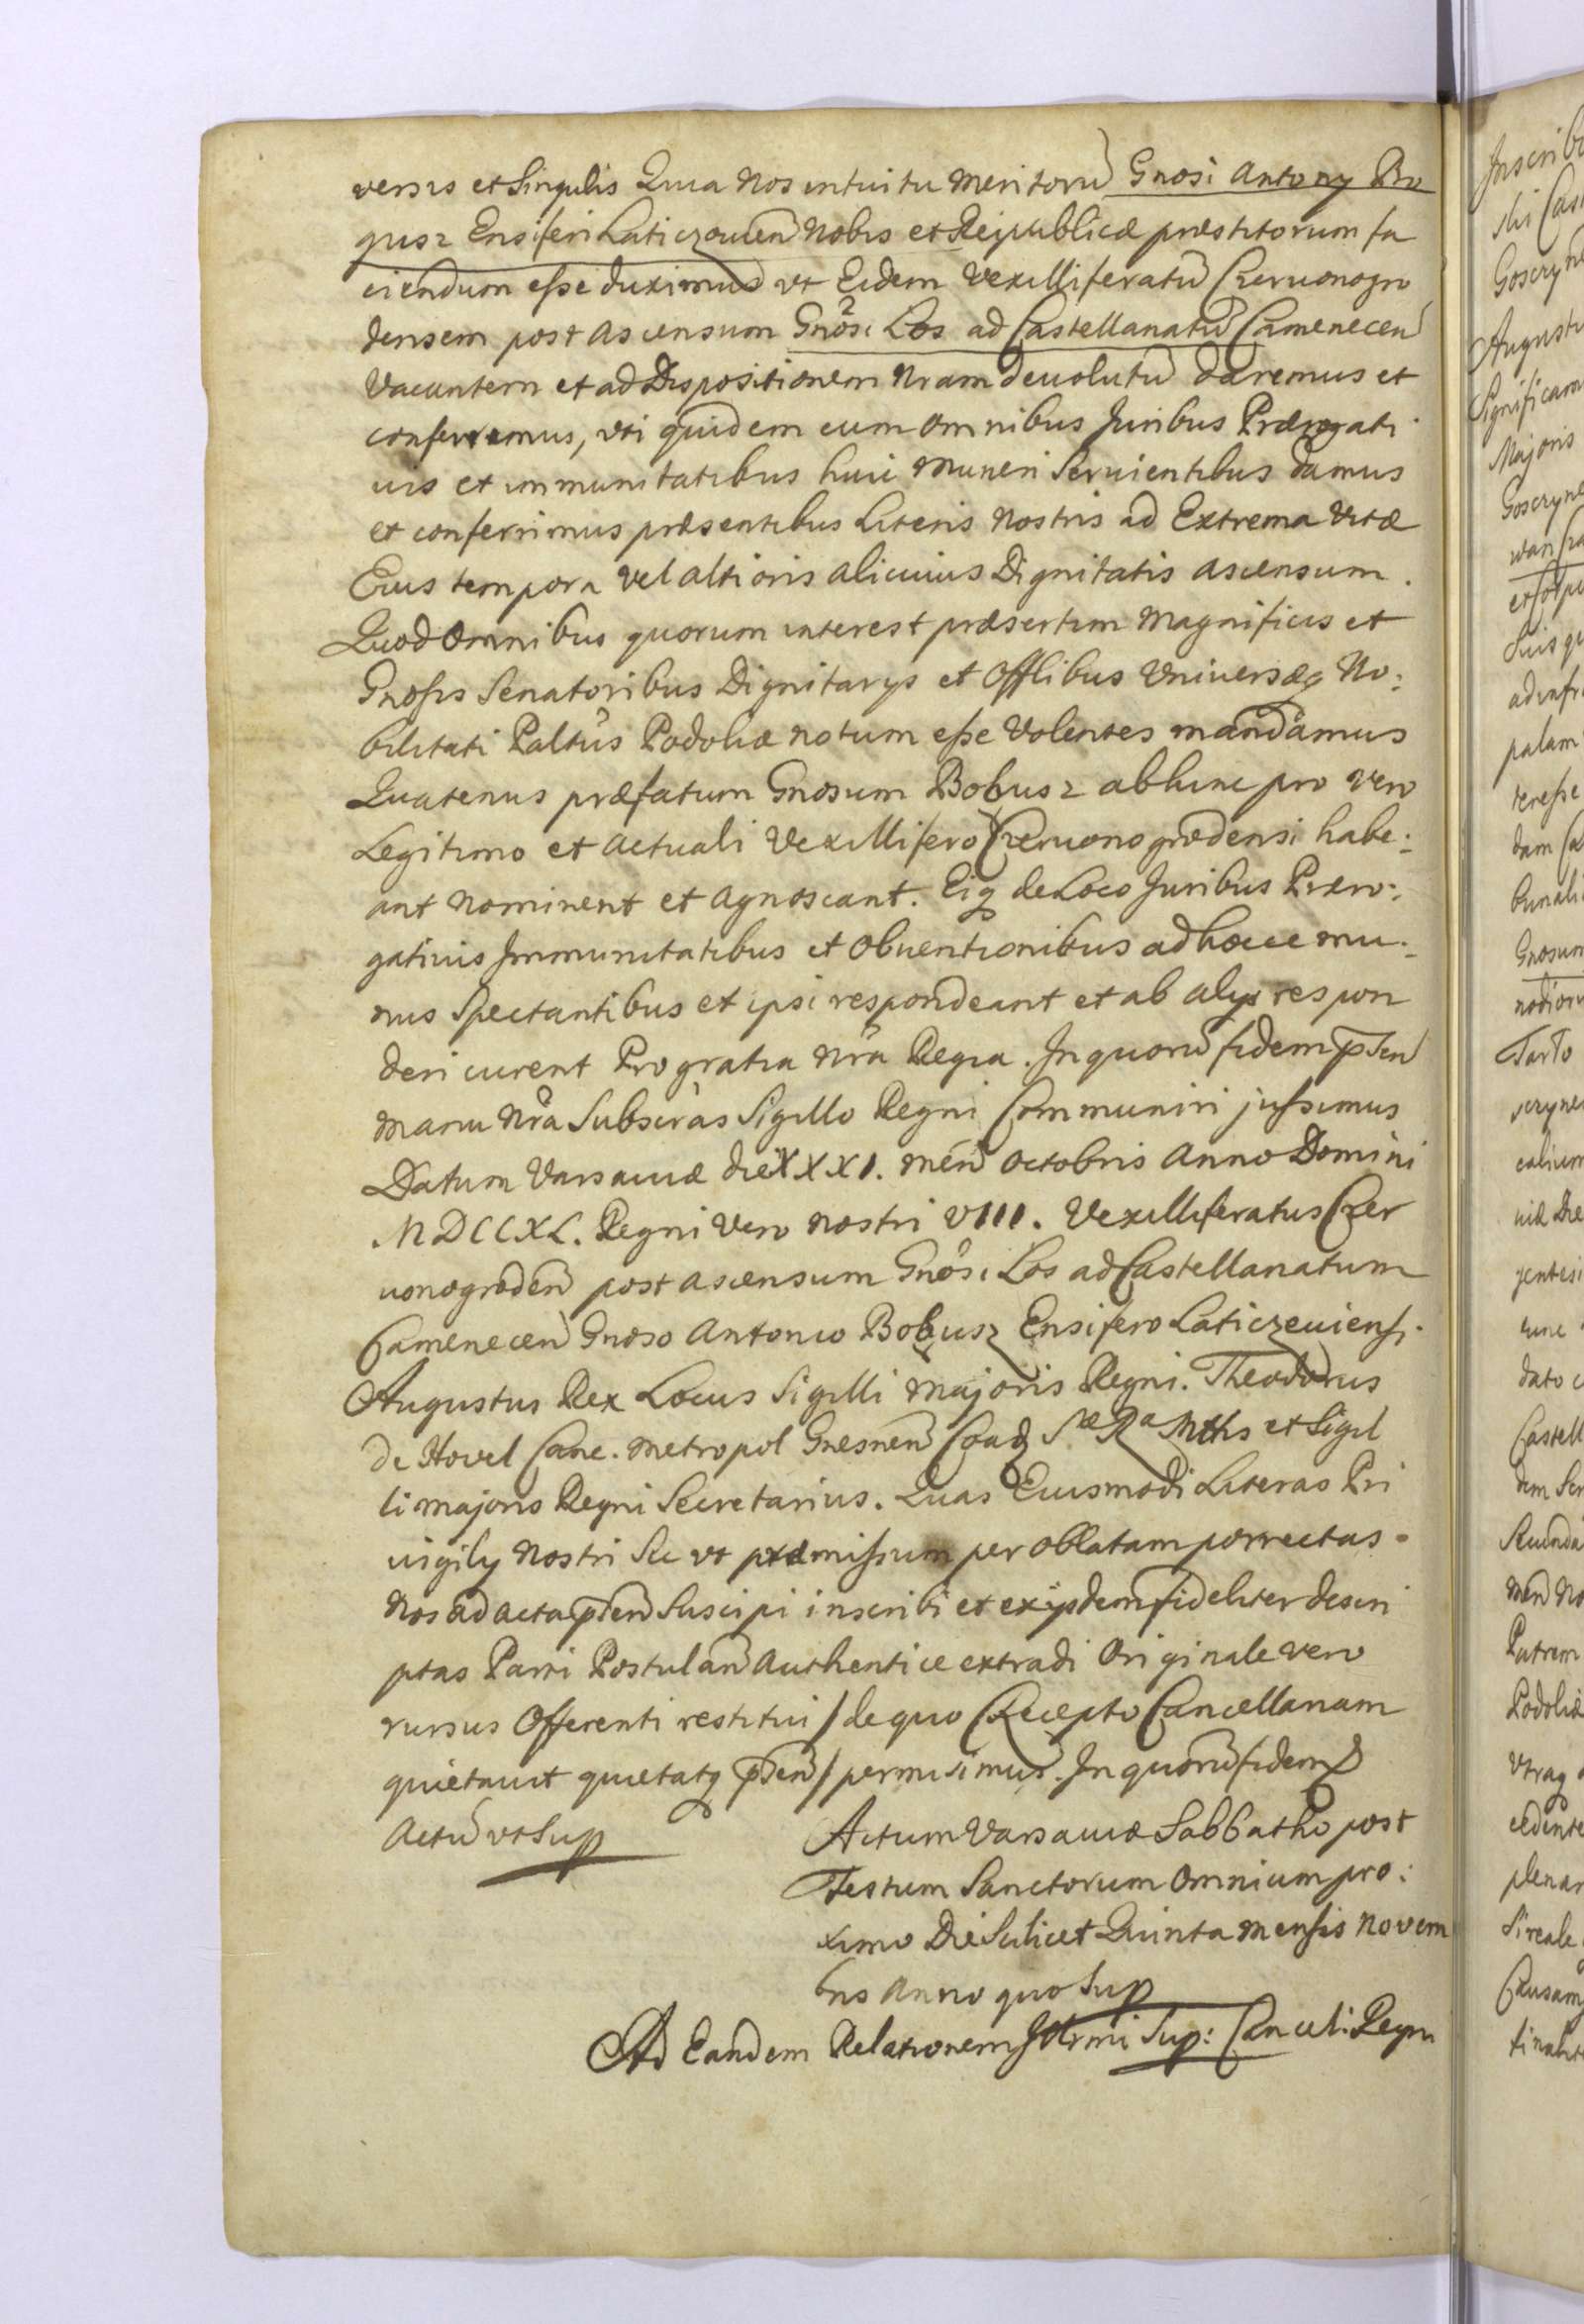 versis et Singulis Quia Nos intuitu Meritorũ Gnosi Antony Bo
gusz Ensiferi Laticzouieñ Nobis et Reipublicæ præstitorum fa
ciendum esse duximus vt Eidem Vexilliferatũ Czeruonogro
densem post ascensum Gnosi Łos ad Castellanatũ Camenecen̄
Vacantem et ad Dispositionem Nram deuolutũ daremus et
conferremus, vti quidem cum omnibus Juribus Prærogati
uis et immunitatibus huic Muneri Seruientibus damus
et conferrimus præsentibus Literis Nostris ad Extrema Vitæ
Eius tempora vel altioris alicuius Dignitatis ascensum.
Quod omnibus quorum interest præsertim Magnificis et
Gnosis Senatoribus Dignitarys et Offlibus Vniversæq No:
bilitati Paltus Podoliæ notum esse Volentes mandamus
Quatenus præfatum Gnosum Bobusz abhinc pro Vero
Legitimo et actuali Vexillifero Czeruonogrodensi habe:
ant Nominent et Agnoscant. Eiq de Loco Juribus Præro:
gatiuis Immunitatibus et Obuentionibus ad hocce mu:
nus Spectantibus et ipsi respondeant et ab alys respon
deri curent Pro gratia Nra Regia. In quorũ fidem pñten̄
manu Nra Subscras Sigillo Regni Communiri jussimus
Datum Varsauiæ die XXXI. Men̄ Octobris Anno Domini
MDCCXL. Regni Vero Nostri VIII. Vexilliferatus Czer
uonogroden̄ post ascensum Gnosi Łos ad Castellanatum
Camenecen̄ Gnoso Antonio Bobusz Ensifero Laticzeuiensi.
Augustus Rex Locus Sigilli Majoris Regni. Theodorus
de Hovel Canc. Metropol Gnesnen̄ Coadj Sæ Rᵃ Mttis et Sigil
li majoris Regni Secretarius. Quas Eiusmodi Literas Pri
uigily Nostri Sic vt præmissum per oblatam porrectas
Nos ad acta pñten̄ Suscipi inscribi et ex ijsdem fideliter descri
ptas Parti Postulan̄ Authentice extradi Originale vero
rursus Offerenti restitui / de quo Recepto Cancellariam
quietauit quietatq pñten̄ / permisimus. In quorũ fidem
Actũ vt Sup
Actum Varsauiæ Sabbatho post
Festum Sanctorum Omnium pro:
ximo Die Scilicet Quinta Mensis Novem
bris Anno quo Sup
Ad Eandem Relationem Illrmi Sup: Cancel: Regni